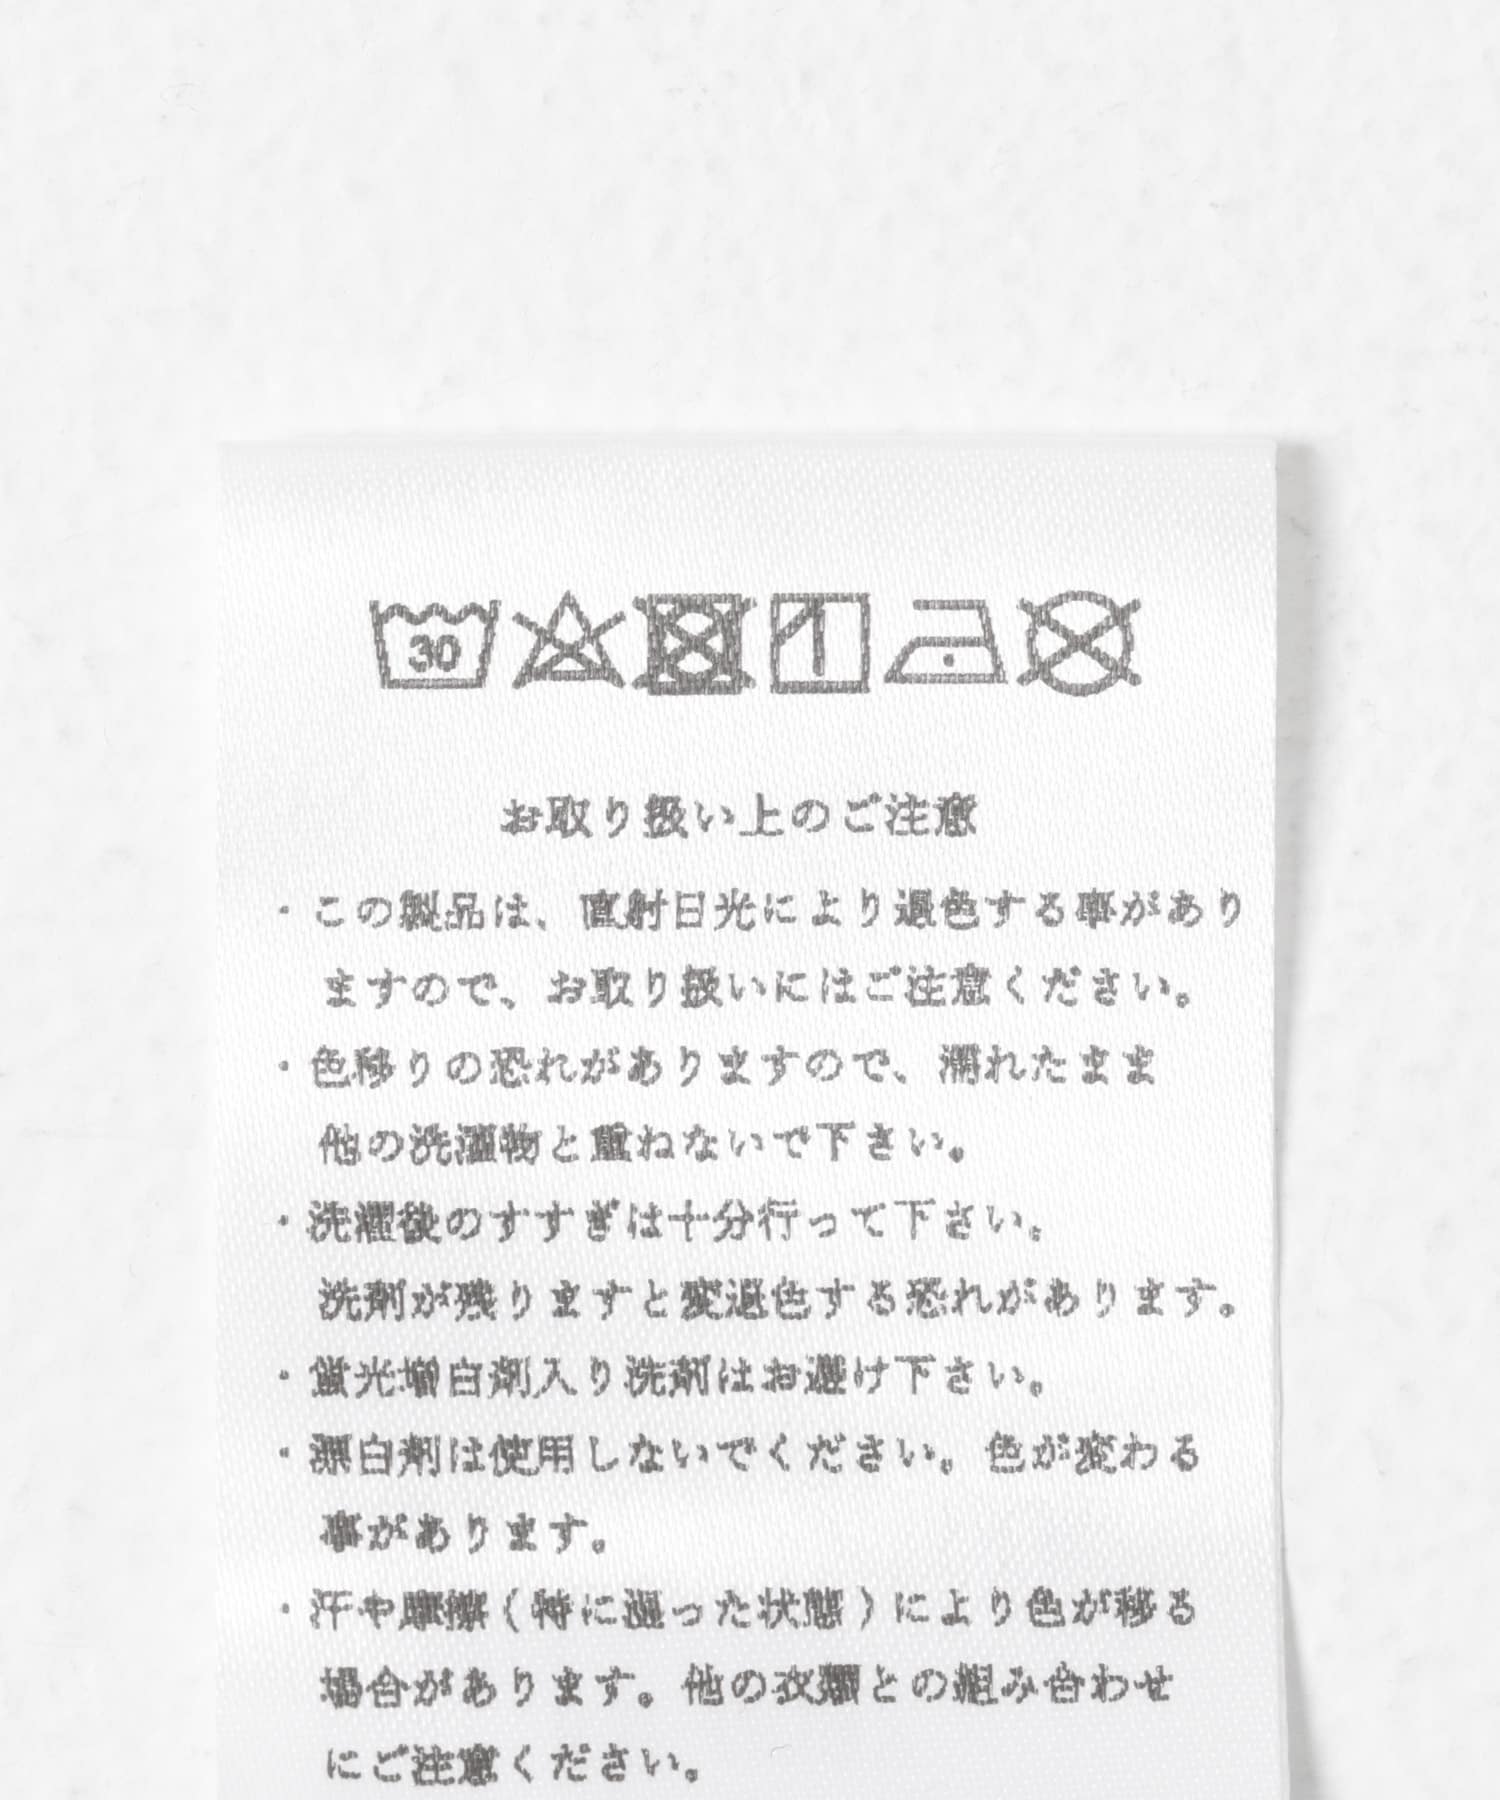 30
お取り扱い上のご注意
・この製品は、直射日光により退色する事があり
ますので、お取り扱いにはご注意ください。
・色移りの恐れがありますので、濡れたまま
他の洗濯物と重ねないで下さい。
・洗濯後のすすぎは十分行って下さい。
洗剤が残りますと変退色する恐れがあります。
・蛍光増白剤入り洗剤はお避け下さい。
・漂白剤は使用しないでください。色が変わる
事があります。
・汗や摩擦(特に湿った状態)により色が移る
場合があります。他の衣類との組み合わせ
にご注意ください。